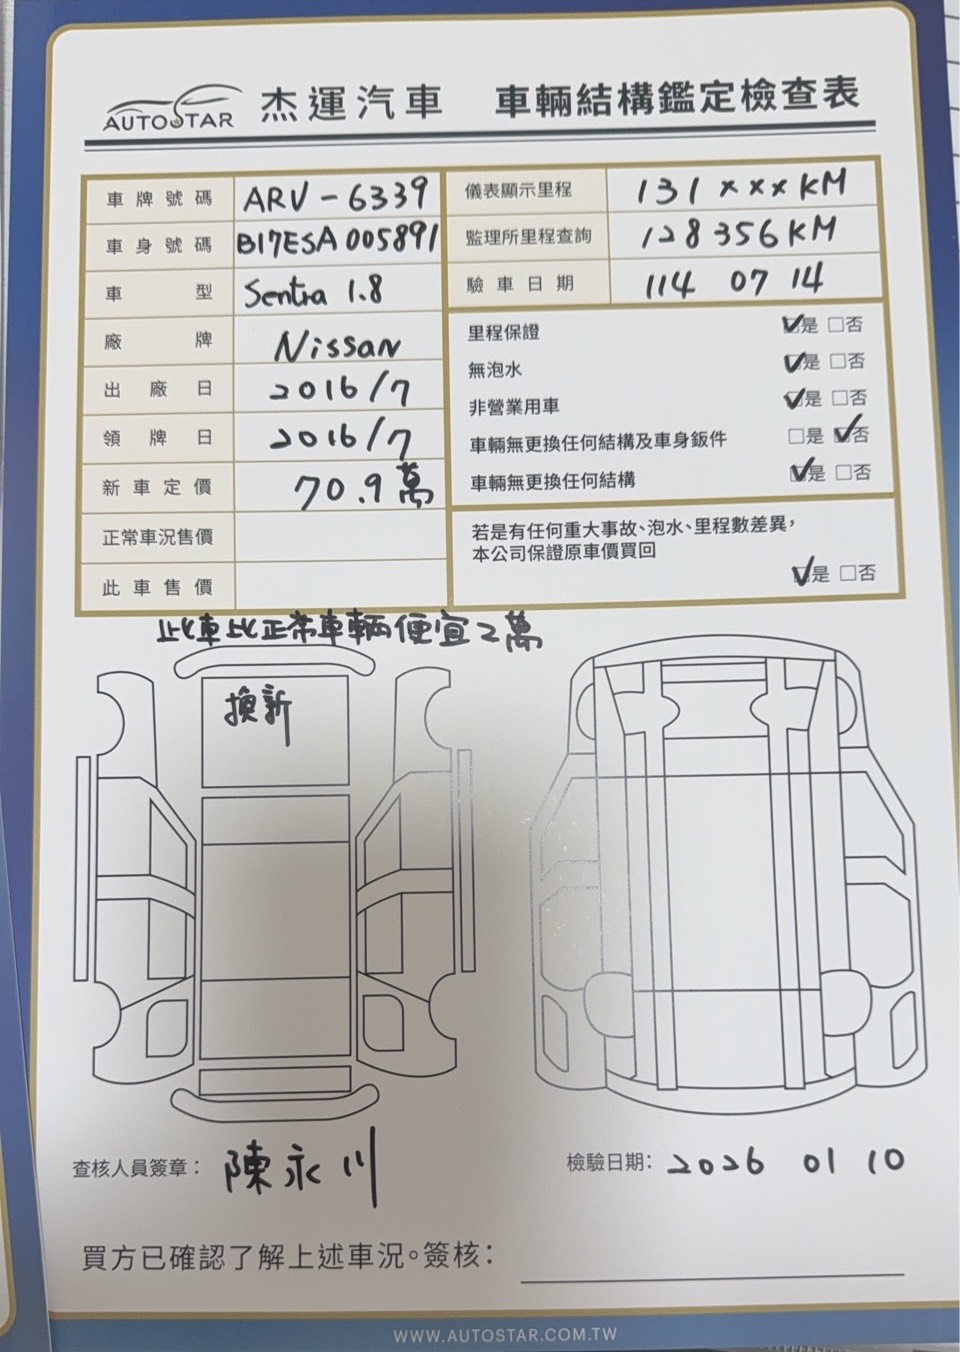 AUTOSTAR 杰運汽車 車輛結構鑑定檢查表
車牌號碼 ARV-6339
車身號碼 B17ESA005891
車型 Sentra 1.8
廠牌 Nissan
出廠日 2016/7
領牌日 2016/7
新車定價 70.9萬
正常車況售價
此車售價
儀表顯示里程 131xxxKM
監理所里程查詢 128356KM
驗車日期 114 07 14
里程保證 ☑是 □否
無泡水 ☑是 □否
非營業用車 ☑是 □否
車輛無更換任何結構及車身鈑件 □是 ☑否
車輛無更換任何結構 ☑是 □否
若是有任何重大事故、泡水、里程數差異,
本公司保證原車價買回
☑是 □否
此車比正常車輛便宜2萬
換新
查核人員簽章: 陳永川
檢驗日期: 2026 01 10
買方已確認了解上述車況。簽核:
WWW.AUTOSTAR.COM.TW